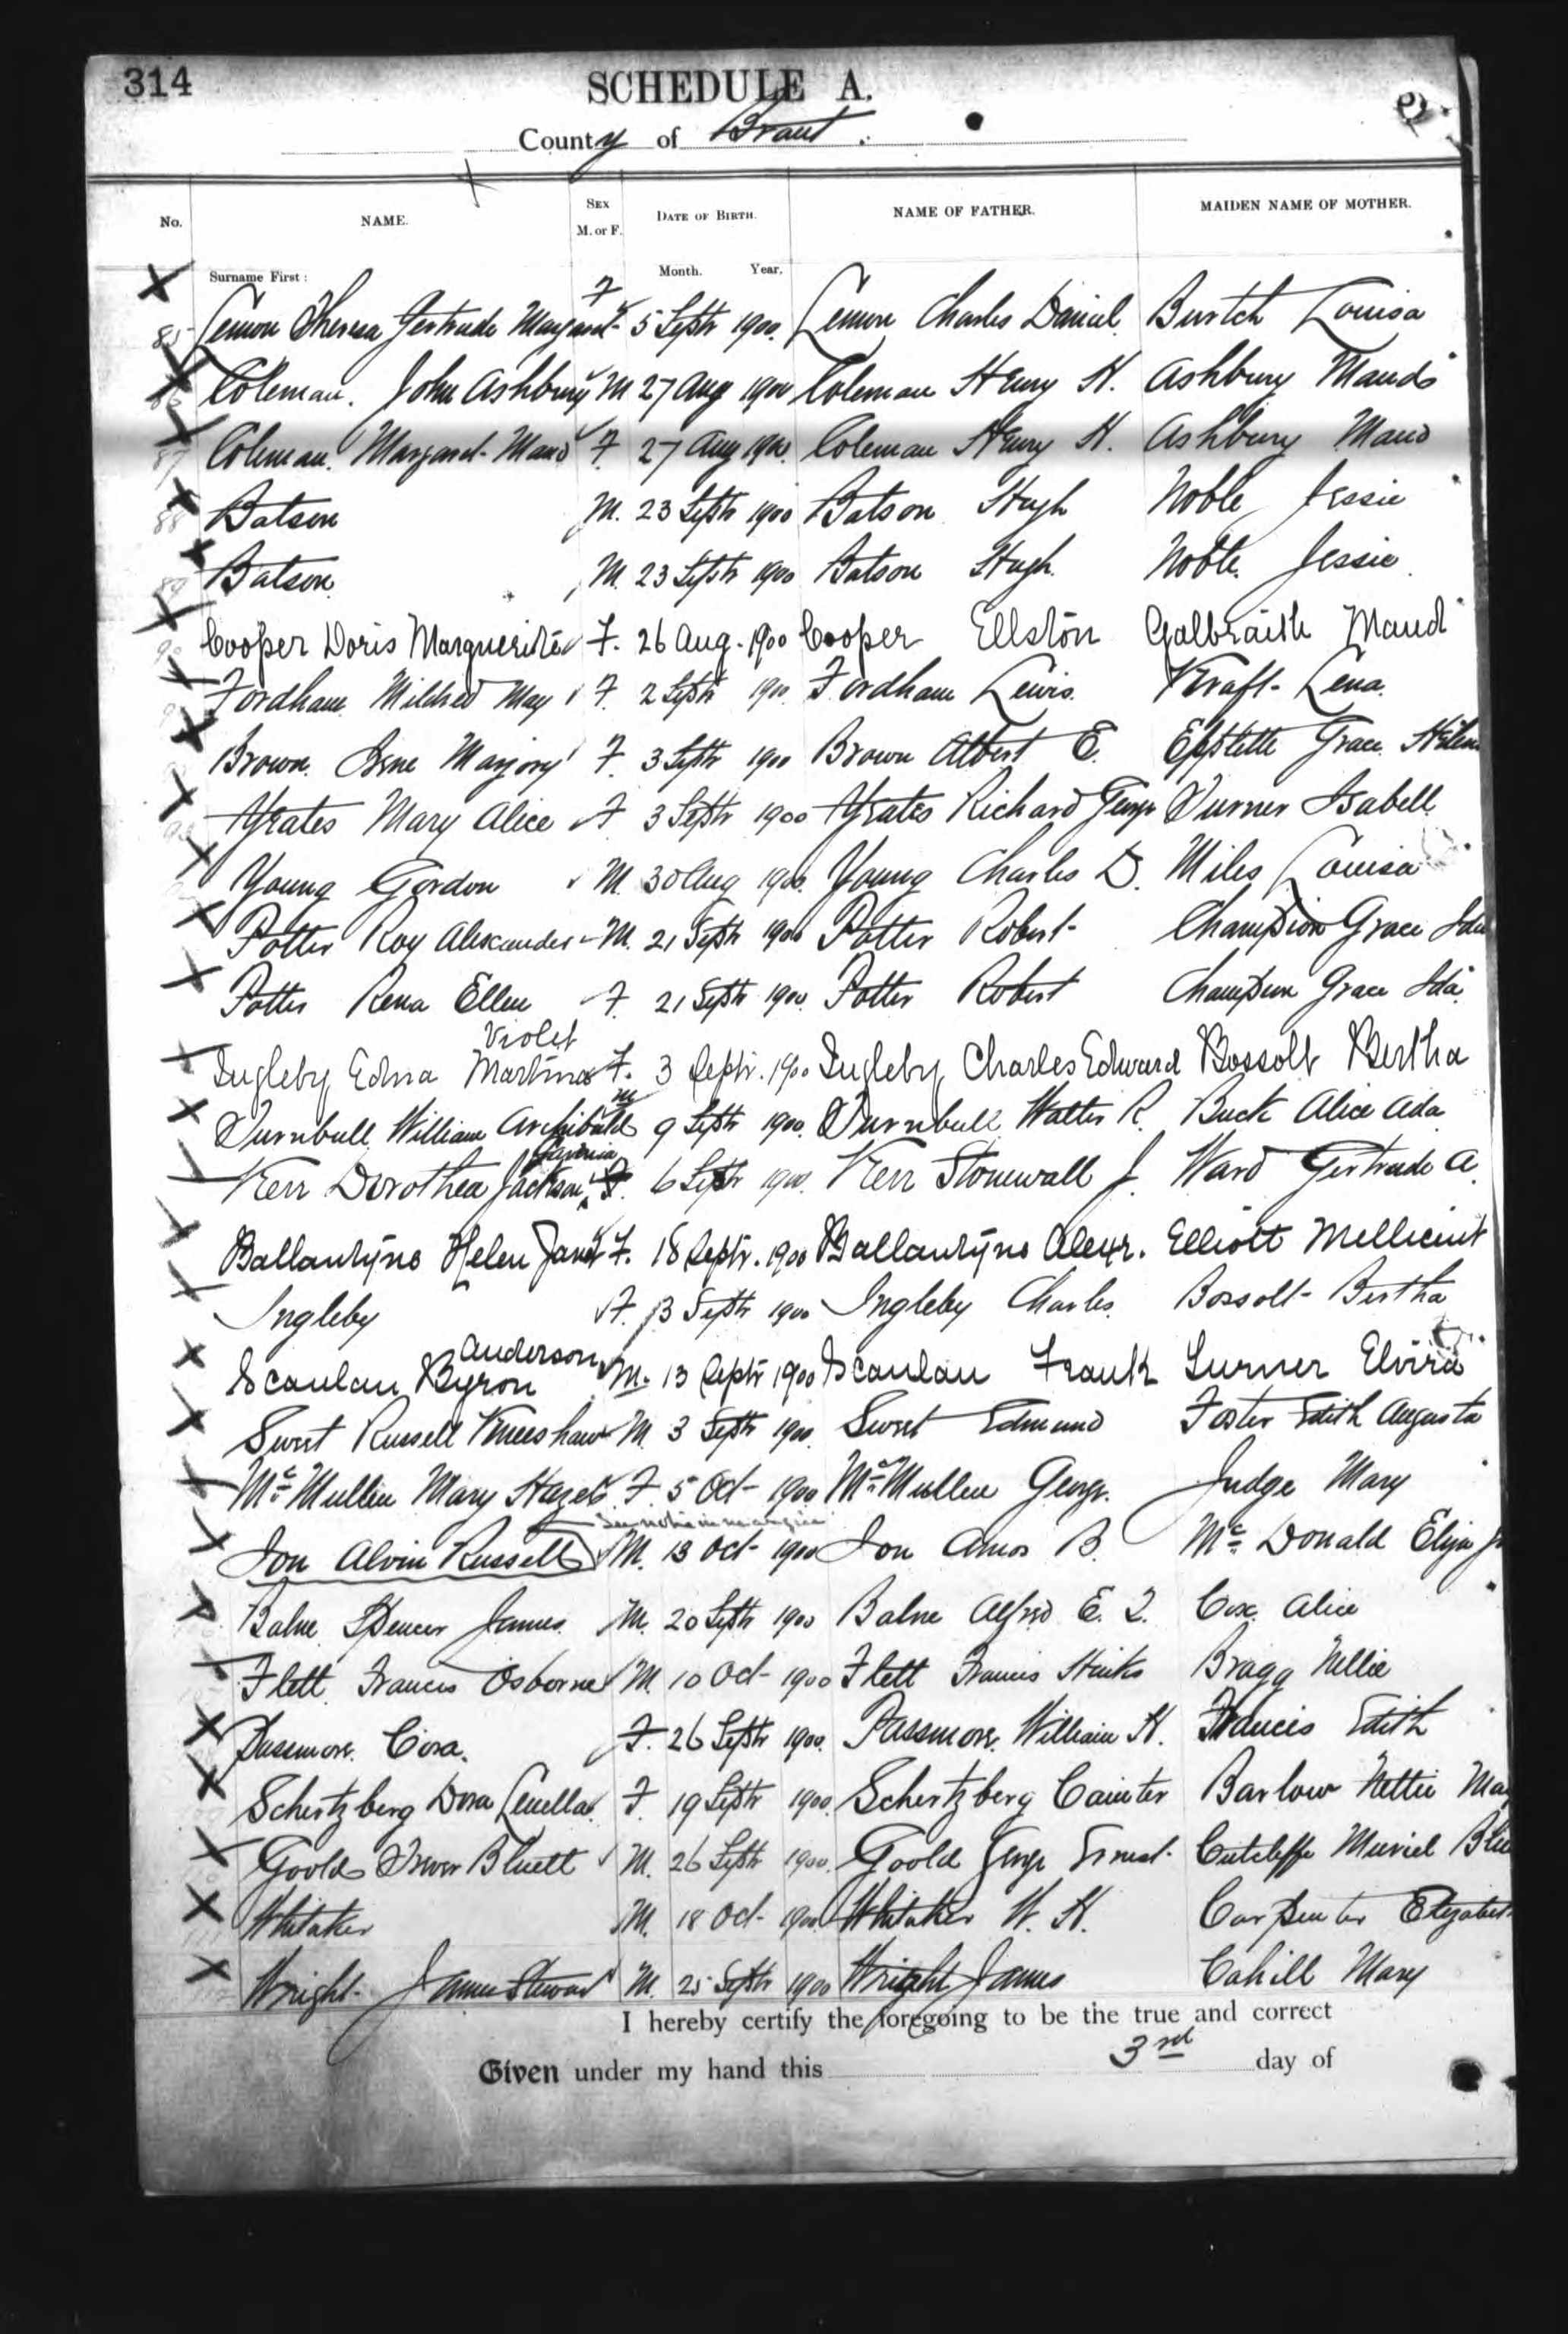 314
SCHEDULE A.
County of Brant.
No. NAME. SEX M. or F. DATE OF BIRTH. NAME OF FATHER. MAIDEN NAME OF MOTHER.
Surname First: Month. Year.
85 Lemon Theresa Gertrude Margaret F 5 Septr 1900. Lemon Charles Daniel. Burtch Louisa
86 Coleman. John Ashbury M 27 Aug 1900 Coleman Henry H. Ashbury Maud
87 Coleman. Margaret Maud F. 27 Aug 1900. Coleman Henry H. Ashbury Maud
88 Batson M. 23 Septr 1900 Batson Hugh Noble Jessie
89 Batson M. 23 Septr 1900 Batson Hugh. Noble. Jessie.
90 Cooper Doris Marguerite F. 26 Aug. 1900 Cooper Ellston Galbraith Maud
Fordham Mildred May F. 2 Septr 1900. Fordham Lewis. Kraft Lena.
Brown. Irene Marjory F. 3 Septr 1900 Brown Albert E. Grace Helen
93 Yeates Mary Alice F. 3 Septr 1900 Yeates Richard George Turner Isabell
Young Gordon M. 30 Aug 1900. Young Charles D. Miles Louisa
Potter Roy Alexander M. 21 Septr 1900 Potter Robert Champion Grace Ida
Potter Rena Ellen F. 21 Septr 1900. Potter Robert Champion Grace Ida.
Violet
Ingleby Edna Martina F. 3 Septr. 1900 Ingleby Charles Edward Bossolt Bertha
Turnbull William Archibald M 9 Septr 1900. Turnbull Walter R. Buck Alice Ada
Kerr Dorothea Jackson F. 6 Septr 1900. Kerr Stonewall J. Ward Gertrude A.
Ballantyne Helen Janet F. 18 Septr. 1900 Ballantyne Alexr. Elliott Mellicent
Ingleby F. 13 Septr 1900 Ingleby Charles. Bossolt Bertha
Anderson
Scanlan Byron M. 13 Septr 1900 Scanlan Frank Turner Elvira
Sweet Russell Kneeshaw M. 3 Septr 1900. Sweet Edmund Foster Edith Augusta
McMullen Mary Hazel F. 5 Oct 1900 McMullen George. Judge Mary
See note in margin
Ion Alvin Russell M. 13 Oct 1900 Ion Amos B. McDonald Eliza
Balne Spencer James. M. 20 Septr 1900 Balne Alfred E. Cox. Alice
Flett Francis Osborne M. 10 Oct 1900 Flett Francis Hinks Bragg Nellie
Passmore. Cora. F. 26 Septr 1900. Passmore. William H. Francis Edith
Schertzberg Dora Luella. F. 19 Septr 1900. Schertzberg Cainter Barlow Nettie May
Goold Trevor Bluett M. 26 Septr 1900. Goold George Ernest Cutcliffe Muriel
Whitaker M. 18 Oct 1900 Whitaker W. H. Carpenter Elizabeth
Wright James Stewart M. 25 Septr 1900 Wright James Cahill Mary
I hereby certify the foregoing to be the true and correct
Given under my hand this 3rd day of